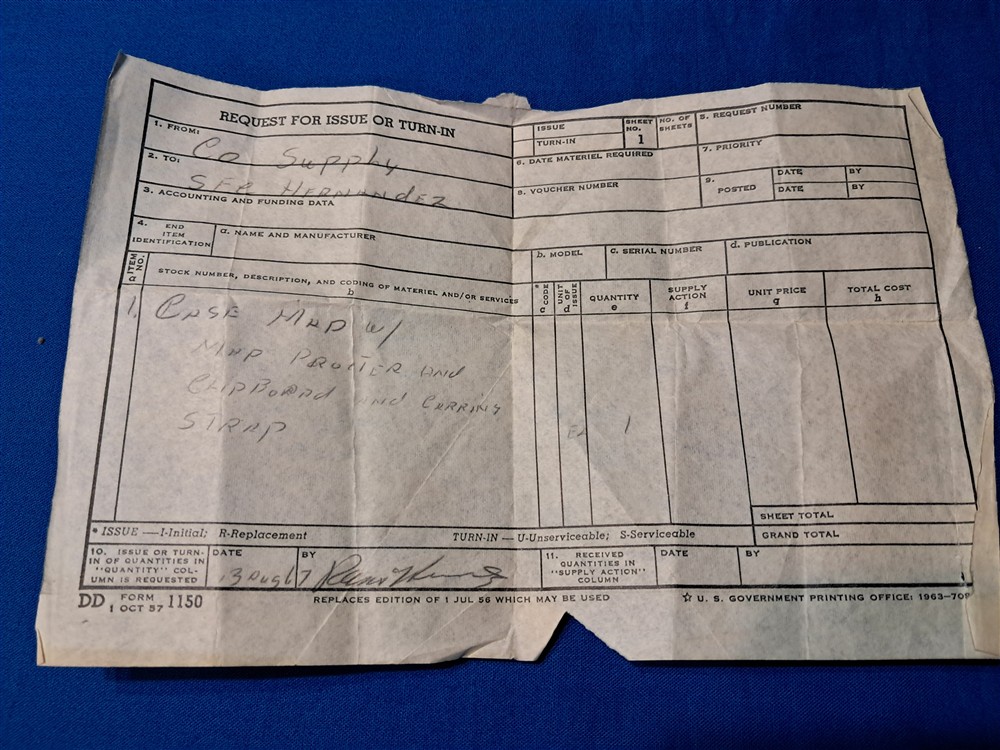 REQUEST FOR ISSUE OR TURN-IN
ISSUE
TURN-IN
SHEET NO. 1
NO. OF SHEETS
5. REQUEST NUMBER
1. FROM:
Co Supply
6. DATE MATERIEL REQUIRED
7. PRIORITY
2. TO:
SFR HERNANDEZ
8. VOUCHER NUMBER
9. POSTED
DATE BY
DATE BY
3. ACCOUNTING AND FUNDING DATA
4. END ITEM IDENTIFICATION
a. NAME AND MANUFACTURER
b. MODEL
c. SERIAL NUMBER
d. PUBLICATION
ITEM NO. a
STOCK NUMBER, DESCRIPTION, AND CODING OF MATERIEL AND/OR SERVICES b
* CODE c
UNIT OF ISSUE d
QUANTITY e
SUPPLY ACTION f
UNIT PRICE g
TOTAL COST h
1. CASE MAP w/
MAP PROTTER AND
CLIPBOARD AND CARRING
STRAP EA 1
SHEET TOTAL
* ISSUE —I-Initial; R-Replacement TURN-IN — U-Unserviceable; S-Serviceable
GRAND TOTAL
10. ISSUE OR TURN-IN OF QUANTITIES IN "QUANTITY" COLUMN IS REQUESTED
DATE
13 Aug 67
BY
11. RECEIVED QUANTITIES IN "SUPPLY ACTION" COLUMN
DATE
BY
DD FORM 1 OCT 57 1150
REPLACES EDITION OF 1 JUL 56 WHICH MAY BE USED
☆ U. S. GOVERNMENT PRINTING OFFICE: 1963-709